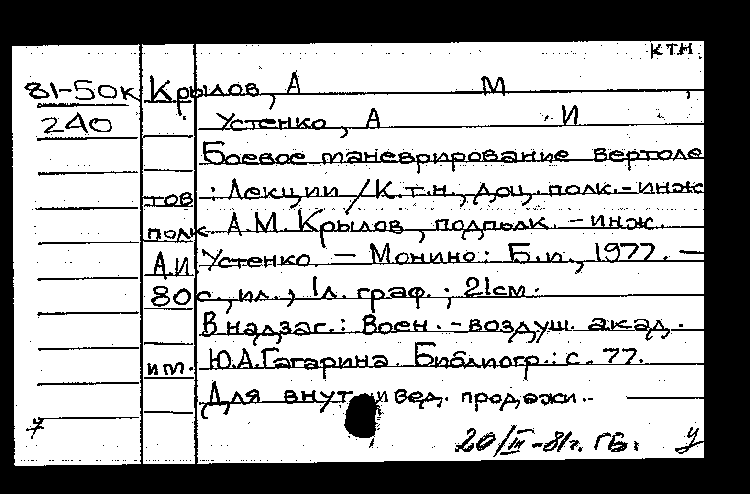 ктн
81-50к Крылов, А М ,
240 Устенко, А . И
Боевое маневрирование вертоле
тов : Лекции /К.т.н., доц. полк.-инж
полк А.М. Крылов, подполк. -инж.
А.И Устенко. — Монино: Б.и., 1977. —
80 с., ил., 1л. граф. ; 21см.
В надзаг.: Воен.-воздуш. акад.
им. Ю.А.Гагарина. Библиогр.: с. 77.
Для внут и вед. продажи.-
7
20/III-81г. ГБ. У